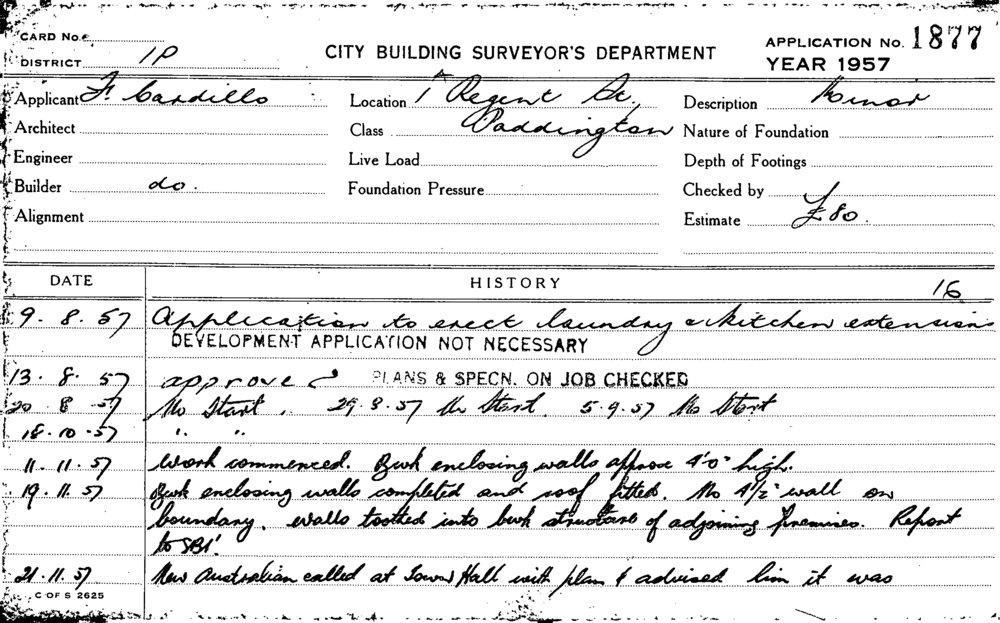 CARD No.
CITY BUILDING SURVEYOR'S DEPARTMENT
APPLICATION No. 1877
DISTRICT 1P
YEAR 1957
Applicant F. Cardillo
Location 1A Regent St,
Description Minor
Architect
Class Paddington
Nature of Foundation
Engineer
Live Load
Depth of Footings
Builder do.
Foundation Pressure
Checked by
Alignment
Estimate £80.
DATE HISTORY 16
9. 8. 57 Application to erect laundry & kitchen extensions
DEVELOPMENT APPLICATION NOT NECESSARY
13. 8. 57 approved PLANS & SPECN. ON JOB CHECKED
20 8 57 No Start. 29.8.57 No Start. 5.9.57 No Start
18.10.57 " "
11.11.57 Work commenced. Bwk enclosing walls approx 4'0" high.
19.11.57 Bwk enclosing walls completed and roof fitted. No 4½" wall on
boundary. Walls toothed into bwk structure of adjoining premises. Report
to SBI.
21.11.57 New Australian called at Town Hall with plan & advised him it was
C OF S 2625